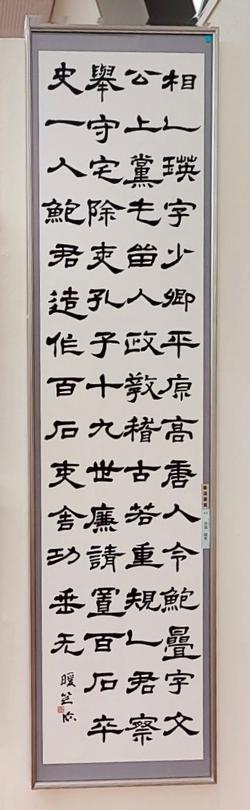 相乙瑛字少卿平原高唐人令鮑疊字文
公上黨屯留人政教稽古若重規乙君察
舉守宅除吏孔子十九世廉請置百石卒
史一人鮑君造作百石吏舍功垂无